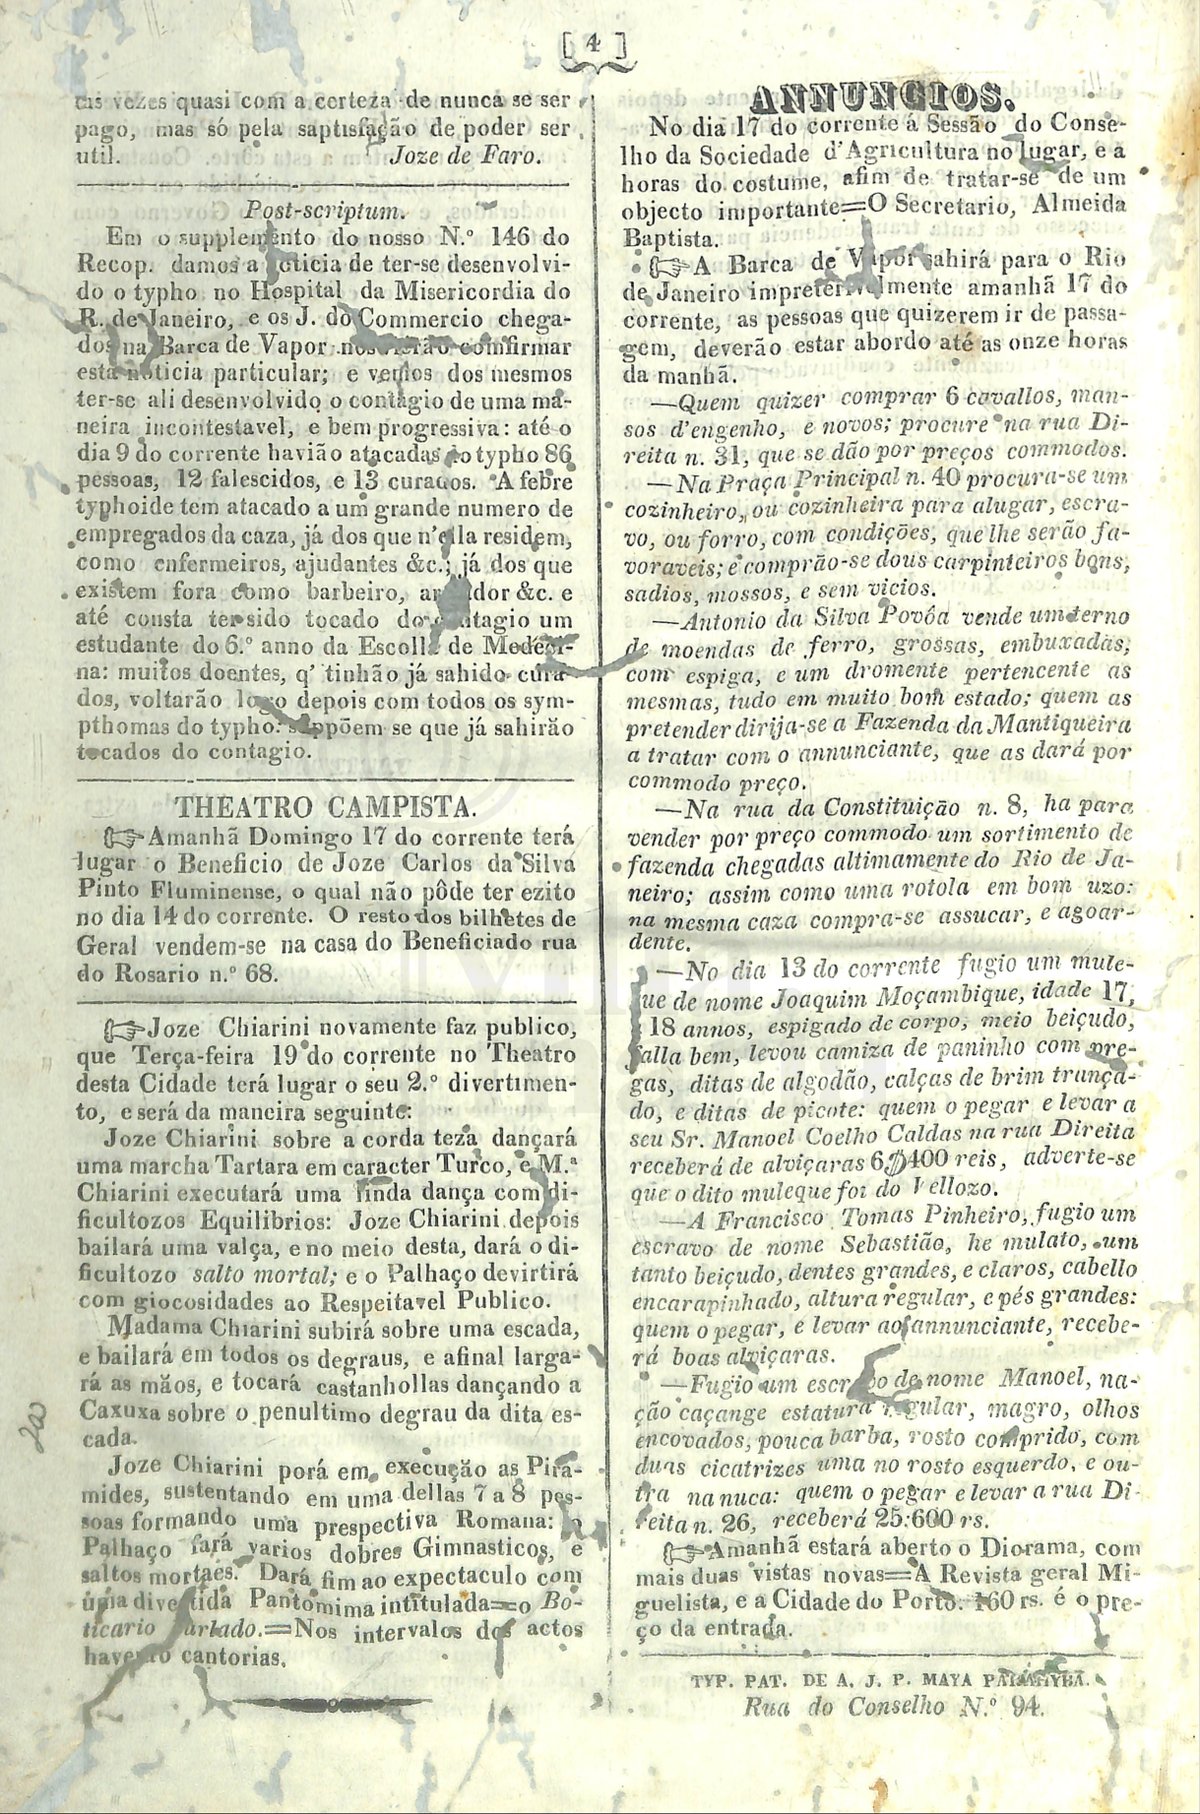 [ 4 ]
vezes quasi com a certeza de nunca se ser
pago, mas só pela saptisfação de poder ser
util. Joze de Faro.
Post-scriptum.
Em o supplemento do nosso N.º 146 do
Recop. damos a noticia de ter-se desenvolvi-
do o typho no Hospital da Misericordia do
R. de Janeiro, e os J. do Commercio chega-
dos na Barca de Vapor comfirmar
esta noticia particular; e vemos dos mesmos
ter-se ali desenvolvido o contagio de uma ma-
neira incontestavel, e bem progressiva: até o
dia 9 do corrente havião atacadas do typho 86
pessoas, 12 falescidos, e 13 curados. A febre
typhoide tem atacado a um grande numero de
empregados da caza, já dos que n'ella residem,
como enfermeiros, ajudantes &c.; já dos que
existem fora como barbeiro, &c. e
até consta ter sido tocado do contagio um
estudante do 6.º anno da Escolla de Medeci-
na: muitos doentes, q' tinhão já sahido cura-
dos, voltarão logo depois com todos os sym-
pthomas do typho: suppõem se que já sahirão
tocados do contagio.
THEATRO CAMPISTA.
☞Amanhã Domingo 17 do corrente terá
lugar o Beneficio de Joze Carlos da Silva
Pinto Fluminense, o qual não pôde ter ezito
no dia 14 do corrente. O resto dos bilhetes de
Geral vendem-se na casa do Beneficiado rua
do Rosario n.º 68.
☞Joze Chiarini novamente faz publico,
que Terça-feira 19 do corrente no Theatro
desta Cidade terá lugar o seu 2.º divertimen-
to, e será da maneira seguinte:
Joze Chiarini sobre a corda teza dançará
uma marcha Tartara em caracter Turco, e M.ª
Chiarini executará uma linda dança com di-
ficultozos Equilibrios: Joze Chiarini depois
bailará uma valça, e no meio desta, dará o di-
ficultozo salto mortal; e o Palhaço devirtirá
com giocosidades ao Respeitavel Publico.
Madama Chiarini subirá sobre uma escada,
e bailará em todos os degraus, e afinal larga-
rá as mãos, e tocará castanhollas dançando a
Caxuxa sobre o penultimo degrau da dita es-
cada.
Joze Chiarini porá em execução as Pira-
mides, sustentando em uma dellas 7 a 8 pes-
soas formando uma prespectiva Romana: o
Palhaço fará varios dobres Gimnasticos, e
saltos mortaes. Dará fim ao expectaculo com
uma divertida Pantomima intitulada=o Bo-
ticario furlado.=Nos intervalos dos actos
haverão cantorias.
ANNUNCIOS.
No dia 17 do corrente á Sessão do Conse-
lho da Sociedade d'Agricultura no lugar, e a
horas do costume, afim de tratar-se de um
objecto importante=O Secretario, Almeida
Baptista.
☞A Barca de Vapor sahirá para o Rio
de Janeiro impreterivelmente amanhã 17 do
corrente, as pessoas que quizerem ir de passa-
gem, deverão estar abordo até as onze horas
da manhã.
—Quem quizer comprar 6 cavallos, man-
sos d'engenho, e novos; procure na rua Di-
reita n. 31, que se dão por preços commodos.
—Na Praça Principal n. 40 procura-se um
cozinheiro, ou cozinheira para alugar, escra-
vo, ou forro, com condições, que lhe serão fa-
voraveis; e comprão-se dous carpinteiros bons,
sadios, mossos, e sem vicios.
—Antonio da Silva Povôa vende um terno
de moendas de ferro, grossas, embuxadas,
com espiga, e um dromente pertencente as
mesmas, tudo em muito bom estado; quem as
pretender dirija-se a Fazenda da Mantiqueira
a tratar com o annunciante, que as dará por
commodo preço.
—Na rua da Constituição n. 8, ha para
vender por preço commodo um sortimento de
fazenda chegadas altimamente do Rio de Ja-
neiro; assim como uma rotola em bom uzo:
na mesma caza compra-se assucar, e agoar-
dente.
—No dia 13 do corrente fugio um mule-
que de nome Joaquim Moçambique, idade 17,
18 annos, espigado de corpo, meio beiçudo,
falla bem, levou camiza de paninho com pre-
gas, ditas de algodão, calças de brim trança-
do, e ditas de picote: quem o pegar e levar a
seu Sr. Manoel Coelho Caldas na rua Direita
receberá de alviçaras 6$400 reis, adverte-se
que o dito muleque foi do Vellozo.
—A Francisco Tomas Pinheiro, fugio um
escravo de nome Sebastião, he mulato, um
tanto beiçudo, dentes grandes, e claros, cabello
encarapinhado, altura regular, e pés grandes:
quem o pegar, e levar ao annunciante, recebe-
rá boas alviçaras.
—Fugio um escravo de nome Manoel, na-
ção caçange estatura regular, magro, olhos
encovados, pouca barba, rosto comprido, com
duas cicatrizes uma no rosto esquerdo, e ou-
tra na nuca: quem o pegar e levar a rua Di-
reita n. 26, receberá 25:600 rs.
☞Amanhã estará aberto o Diorama, com
mais duas vistas novas=A Revista geral Mi-
guelista, e a Cidade do Porto. 160 rs. é o pre-
ço da entrada.
TYP. PAT. DE A. J. P. MAYA PARAHYBA.
Rua do Conselho N.º 94.